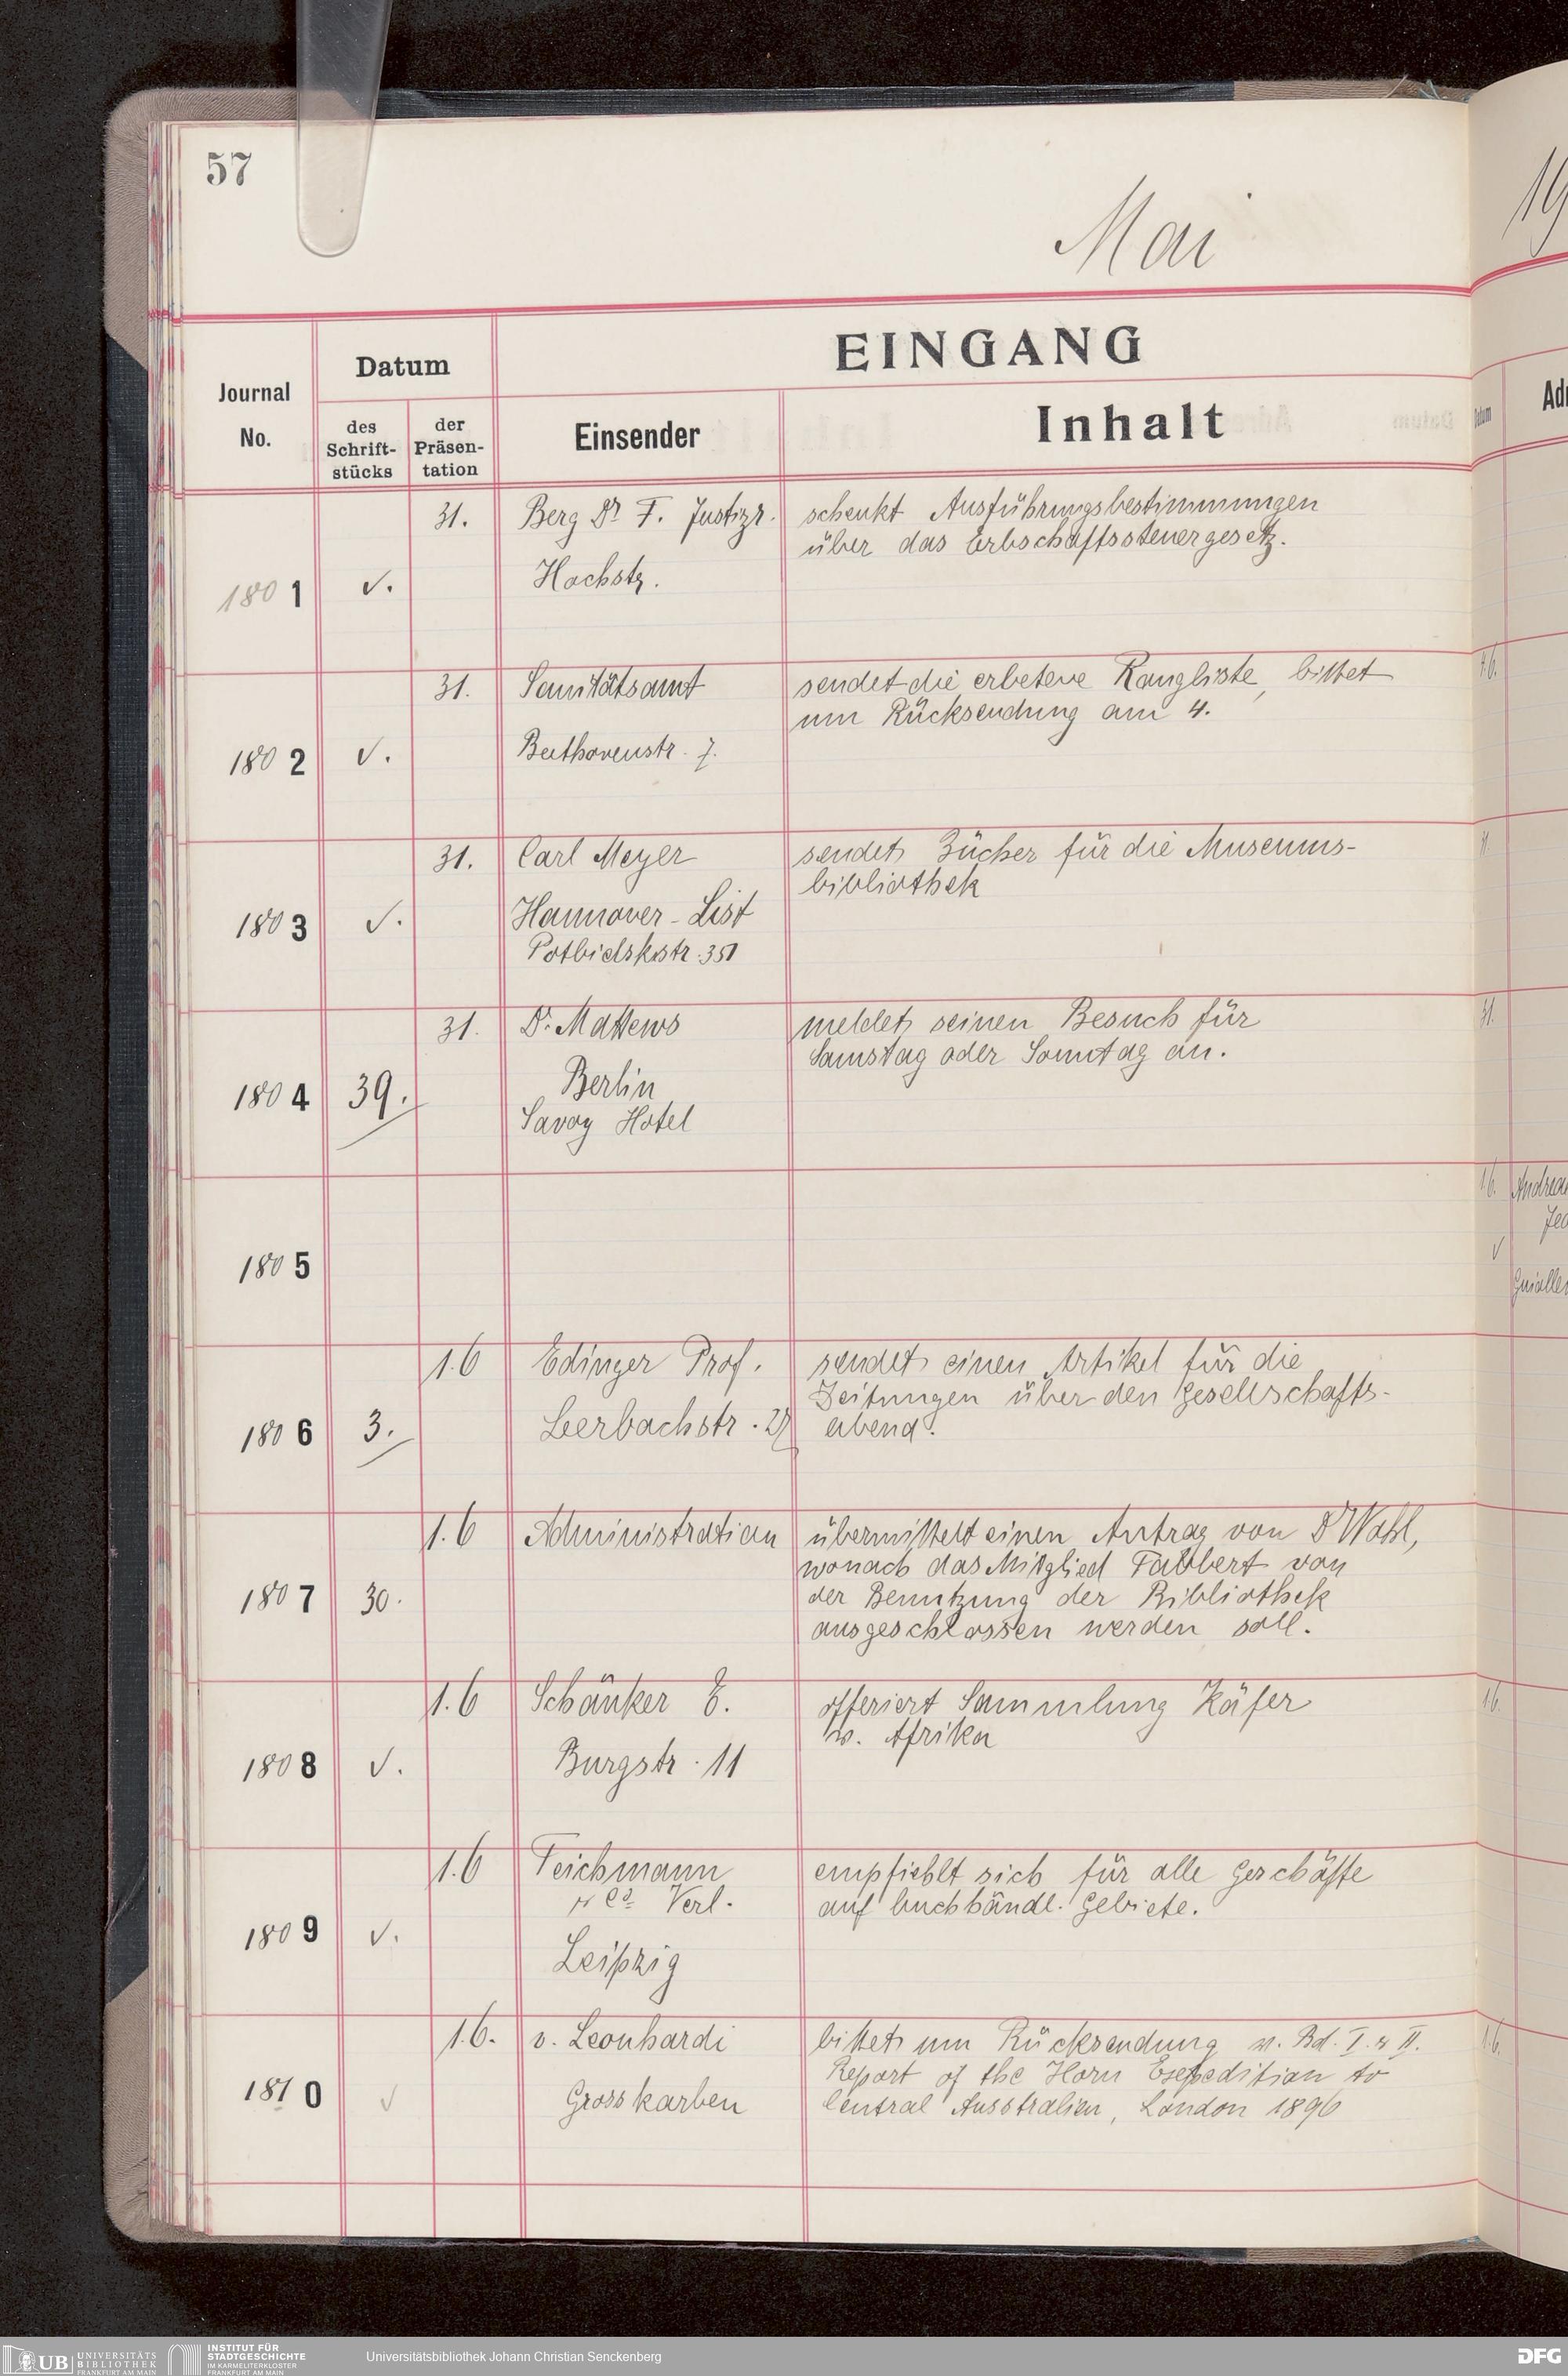 57
Mai
19
EINGANG
Datum
Journal
No.
des
Schrift-
stücks
der
Präsen-
tation
Einsender
Inhalt
Datum
31. Berg Dr F. Justizr. schenkt Ausführungsbestimmungen
über das Erbschaftssteuergesetz.
1801 v. Hochstr.
31. Sanitätsamt sendet die erbetene Rangliste, bittet
um Rücksendung am 4.
1802 v. Beethovenstr. 7.
31. Carl Meyer sendet Bücher für die Museums-
bibliothek
1803 v. Hannover-List
Potbielskistr. 351
31. Dr. Mattews meldet seinen Besuch für
Samstag oder Sonntag an.
1804 39. Berlin
Savoy Hotel
1805
1.6 Edinger Prof. sendet einen Artikel für die
Zeitungen über den Gesellschafts-
abend.
1806 3. Leerbachstr. 27
1.6 Administration übermittelt einen Antrag von Dr Wahl,
wonach das Mitglied Fabbert von
1807 30. der Benutzung der Bibliothek
ausgeschlossen werden soll.
1.6 Schänker E. offeriert Sammlung Käfer
w. Afrika
1808 v. Burgstr. 11
1.6 Teichmann empfiehlt sich für alle Geschäfte
& Co Verl. auf buchhändl. Gebiete.
1809 v. Leipzig
1.6. v. Leonhardi bittet um Rücksendung v. Bd. I. u II.
Report of the Horn Expedition to
1810 v Grosskarben Central Australien, London 1896
UB UNIVERSITÄTS
BIBLIOTHEK
FRANKFURT AM MAIN
INSTITUT FÜR
STADTGESCHICHTE
IM KARMELITERKLOSTER
FRANKFURT AM MAIN
Universitätsbibliothek Johann Christian Senckenberg
DFG